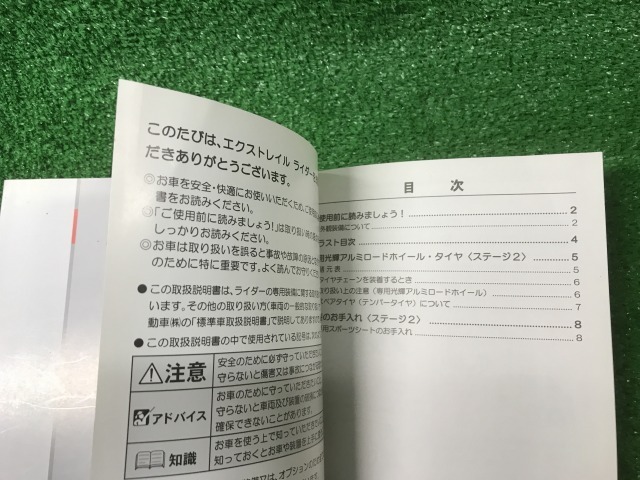 このたびは、エクストレイル ライダーを
だきありがとうございます。
◎お車を安全・快適にお使いいただくため、ご使用
書をお読みください。
◎「ご使用前に読みましょう!」は取り扱い
しっかりお読みください。
◎お車は取り扱いを誤ると事故や故障の
のために特に重要です。よく読んでお守りく
● この取扱説明書は、ライダーの専用装備に関する
ます。その他の取り扱い方(車両の一般的な
動車(株)の「標準車取扱説明書」で説明してあります
● この取扱説明書の中で使用されている記号は、
注意
安全のために必ず守っていただきたい
守らないと傷害又は事故につながる
アドバイス
お車のために守っていただきたいこと
守らないと車両及び装置の故障につな
確保できないことがあります。
知識
お車を使う上で知っていただきた
知っておくとお車や装置を上手に
又は、オプションの
目 次
使用前に読みましょう! 2
外観装備について 2
ラスト目次 4
用光輝アルミロードホイール・タイヤ〈ステージ2〉 5
諸元表 5
タイヤチェーンを装着するとき 6
取り扱い上の注意(専用光輝アルミロードホイール) 6
ペアタイヤ(テンパータイヤ)について 7
のお手入れ〈ステージ2〉 8
用スポーツシートのお手入れ 8